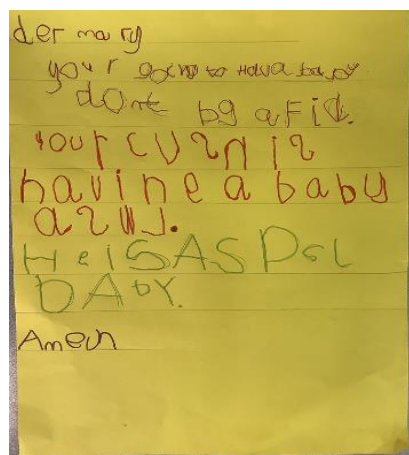 der mary
your going to hava baby
dont bg afid.
your cuzn iz
havine a baby
azwl.
He iS A S PsL
bAby.
Amen